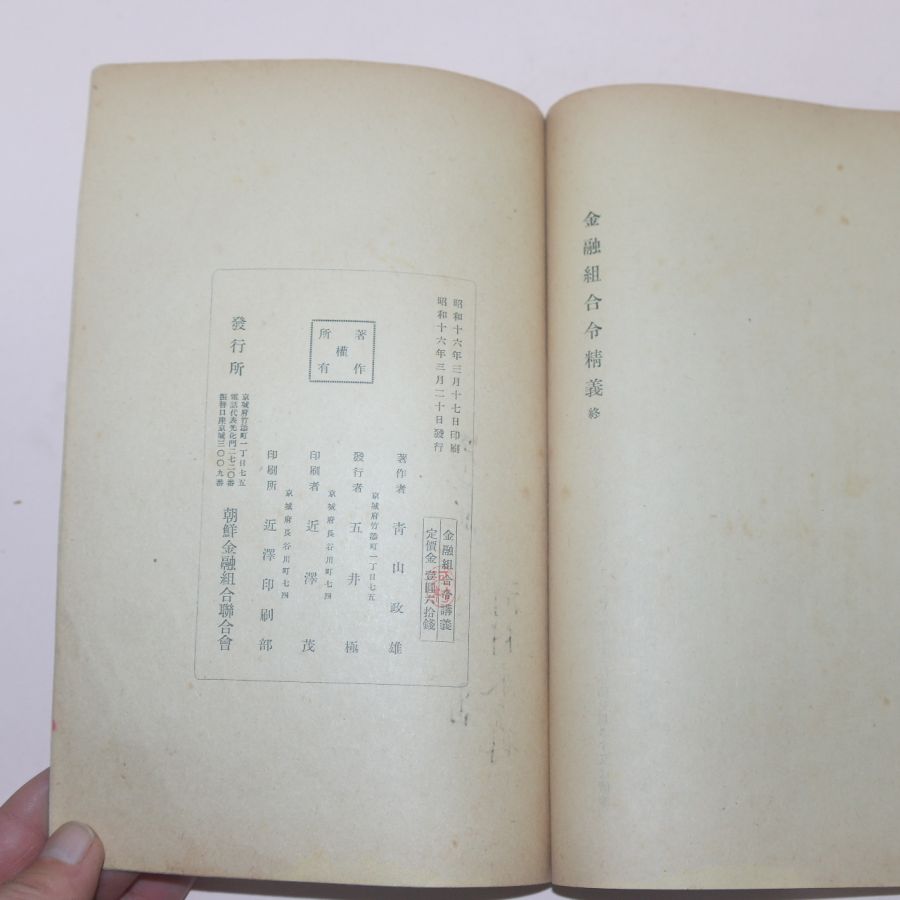 金融組合令精義 終
昭和十六年三月十七日印刷
昭和十六年三月二十日發行
金融組合令講義
定價金 壹圓六拾錢
著作權所有
著作者 靑山政雄
京城府竹添町一丁目七五
發行者 五井極
京城府長谷川町七四
印刷者 近澤茂
京城府長谷川町七四
印刷所 近澤印刷部
發行所
京城府竹添町一丁目七五
電話代表光化門二七二〇番
振替口座京城三〇〇九番
朝鮮金融組合聯合會